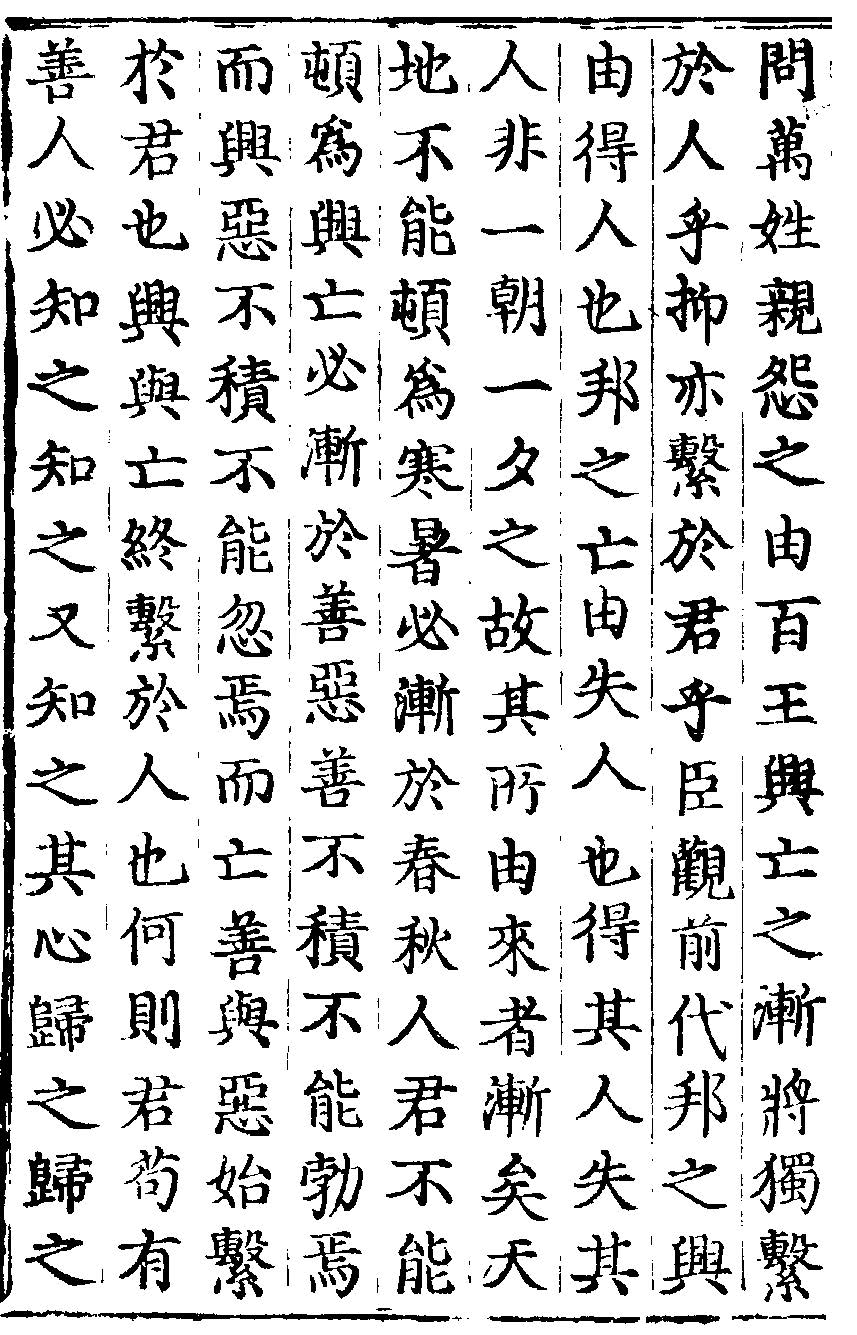 問萬姓親怨之由百王興亡之漸將獨繫
於人乎抑亦繫於君乎臣觀前代邦之興
由得人也邦之亡由失人也得其人失其
人非一朝一夕之故其所由來者漸矣天
地不能頓爲寒暑必漸於春秋人君不能
頓爲興亡必漸於善惡善不積不能勃焉
而興惡不積不能忽焉而亡善與惡始繫
於君也興與亡終繫於人也何則君苟有
善人必知之知之又知之其心歸之歸之